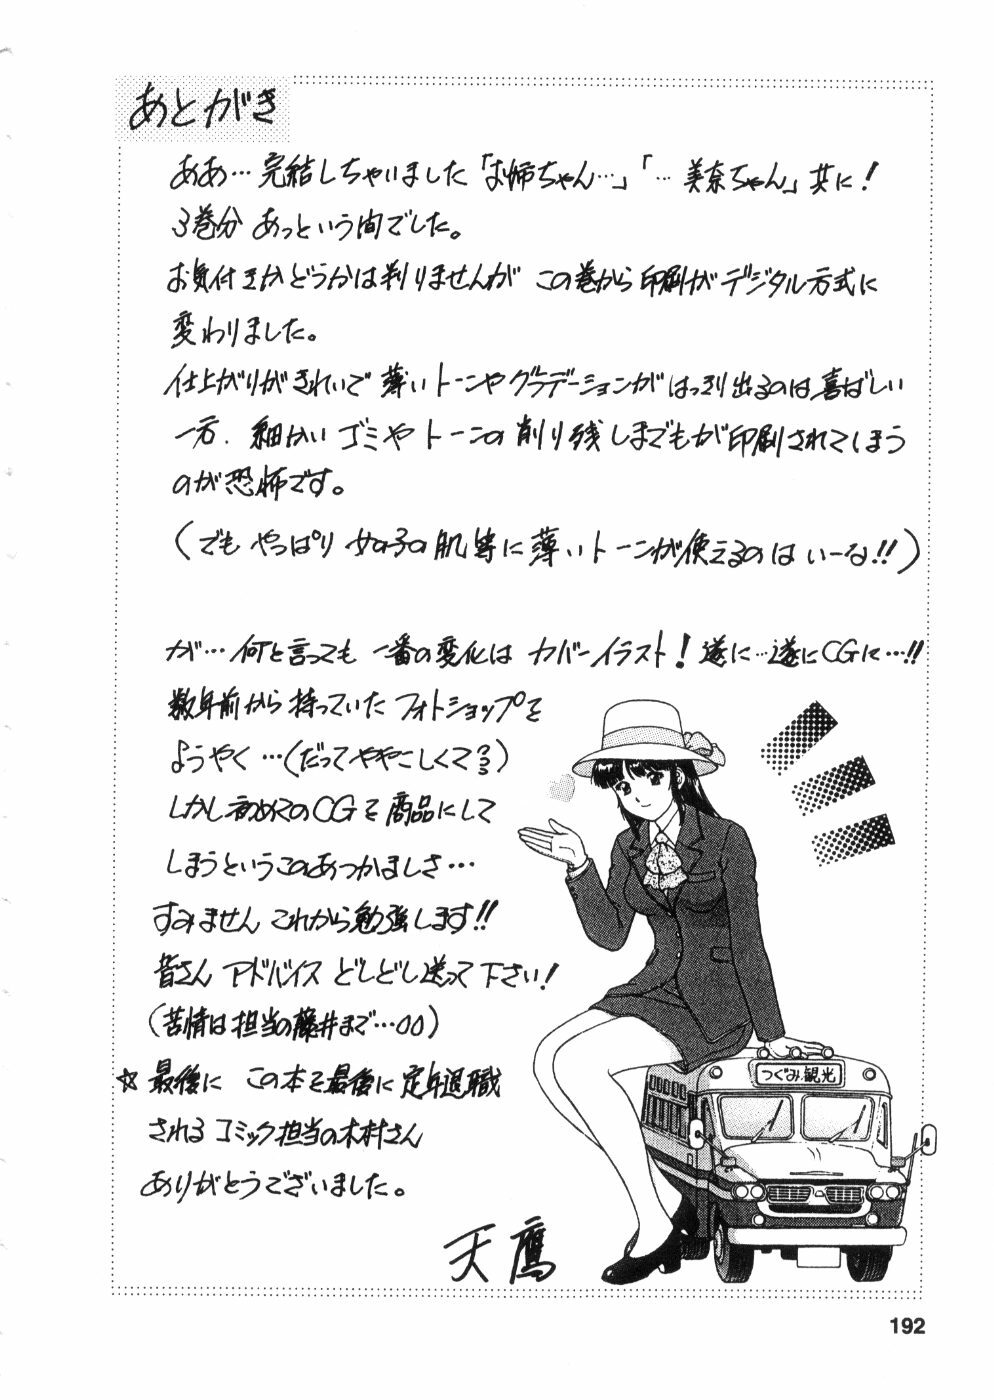 あとがき
ああ…完結しちゃいました「お姉ちゃん…」「…美奈ちゃん」共に!
3巻分 あっという間でした。
お気付きかどうかは判りませんが この巻から印刷がデジタル方式に
変わりました。
仕上がりがきれいで 薄いトーンやグラデーションがはっきり出るのは喜ばしい
一方、細かいゴミやトーンの削り残しまでもが印刷されてしまう
のが恐怖です。
(でも やっぱり 女の子の肌等に薄いトーンが使えるのは いーな!!)
が…何と言っても 一番の変化は カバーイラスト! 遂に…遂にCGに…!!
数年前から持っていたフォトショップを
ようやく…(だってややこしくて??)
しかし初めてのCGを商品にして
しまうというこのあつかましさ…
すみません これから勉強します!!
皆さん アドバイス どしどし送って下さい!
(苦情は担当の藤井まで…)
☆最後に この本を最後に定年退職
されるコミック担当の木村さん
ありがとうございました。
天鷹
つぐみ観光
192